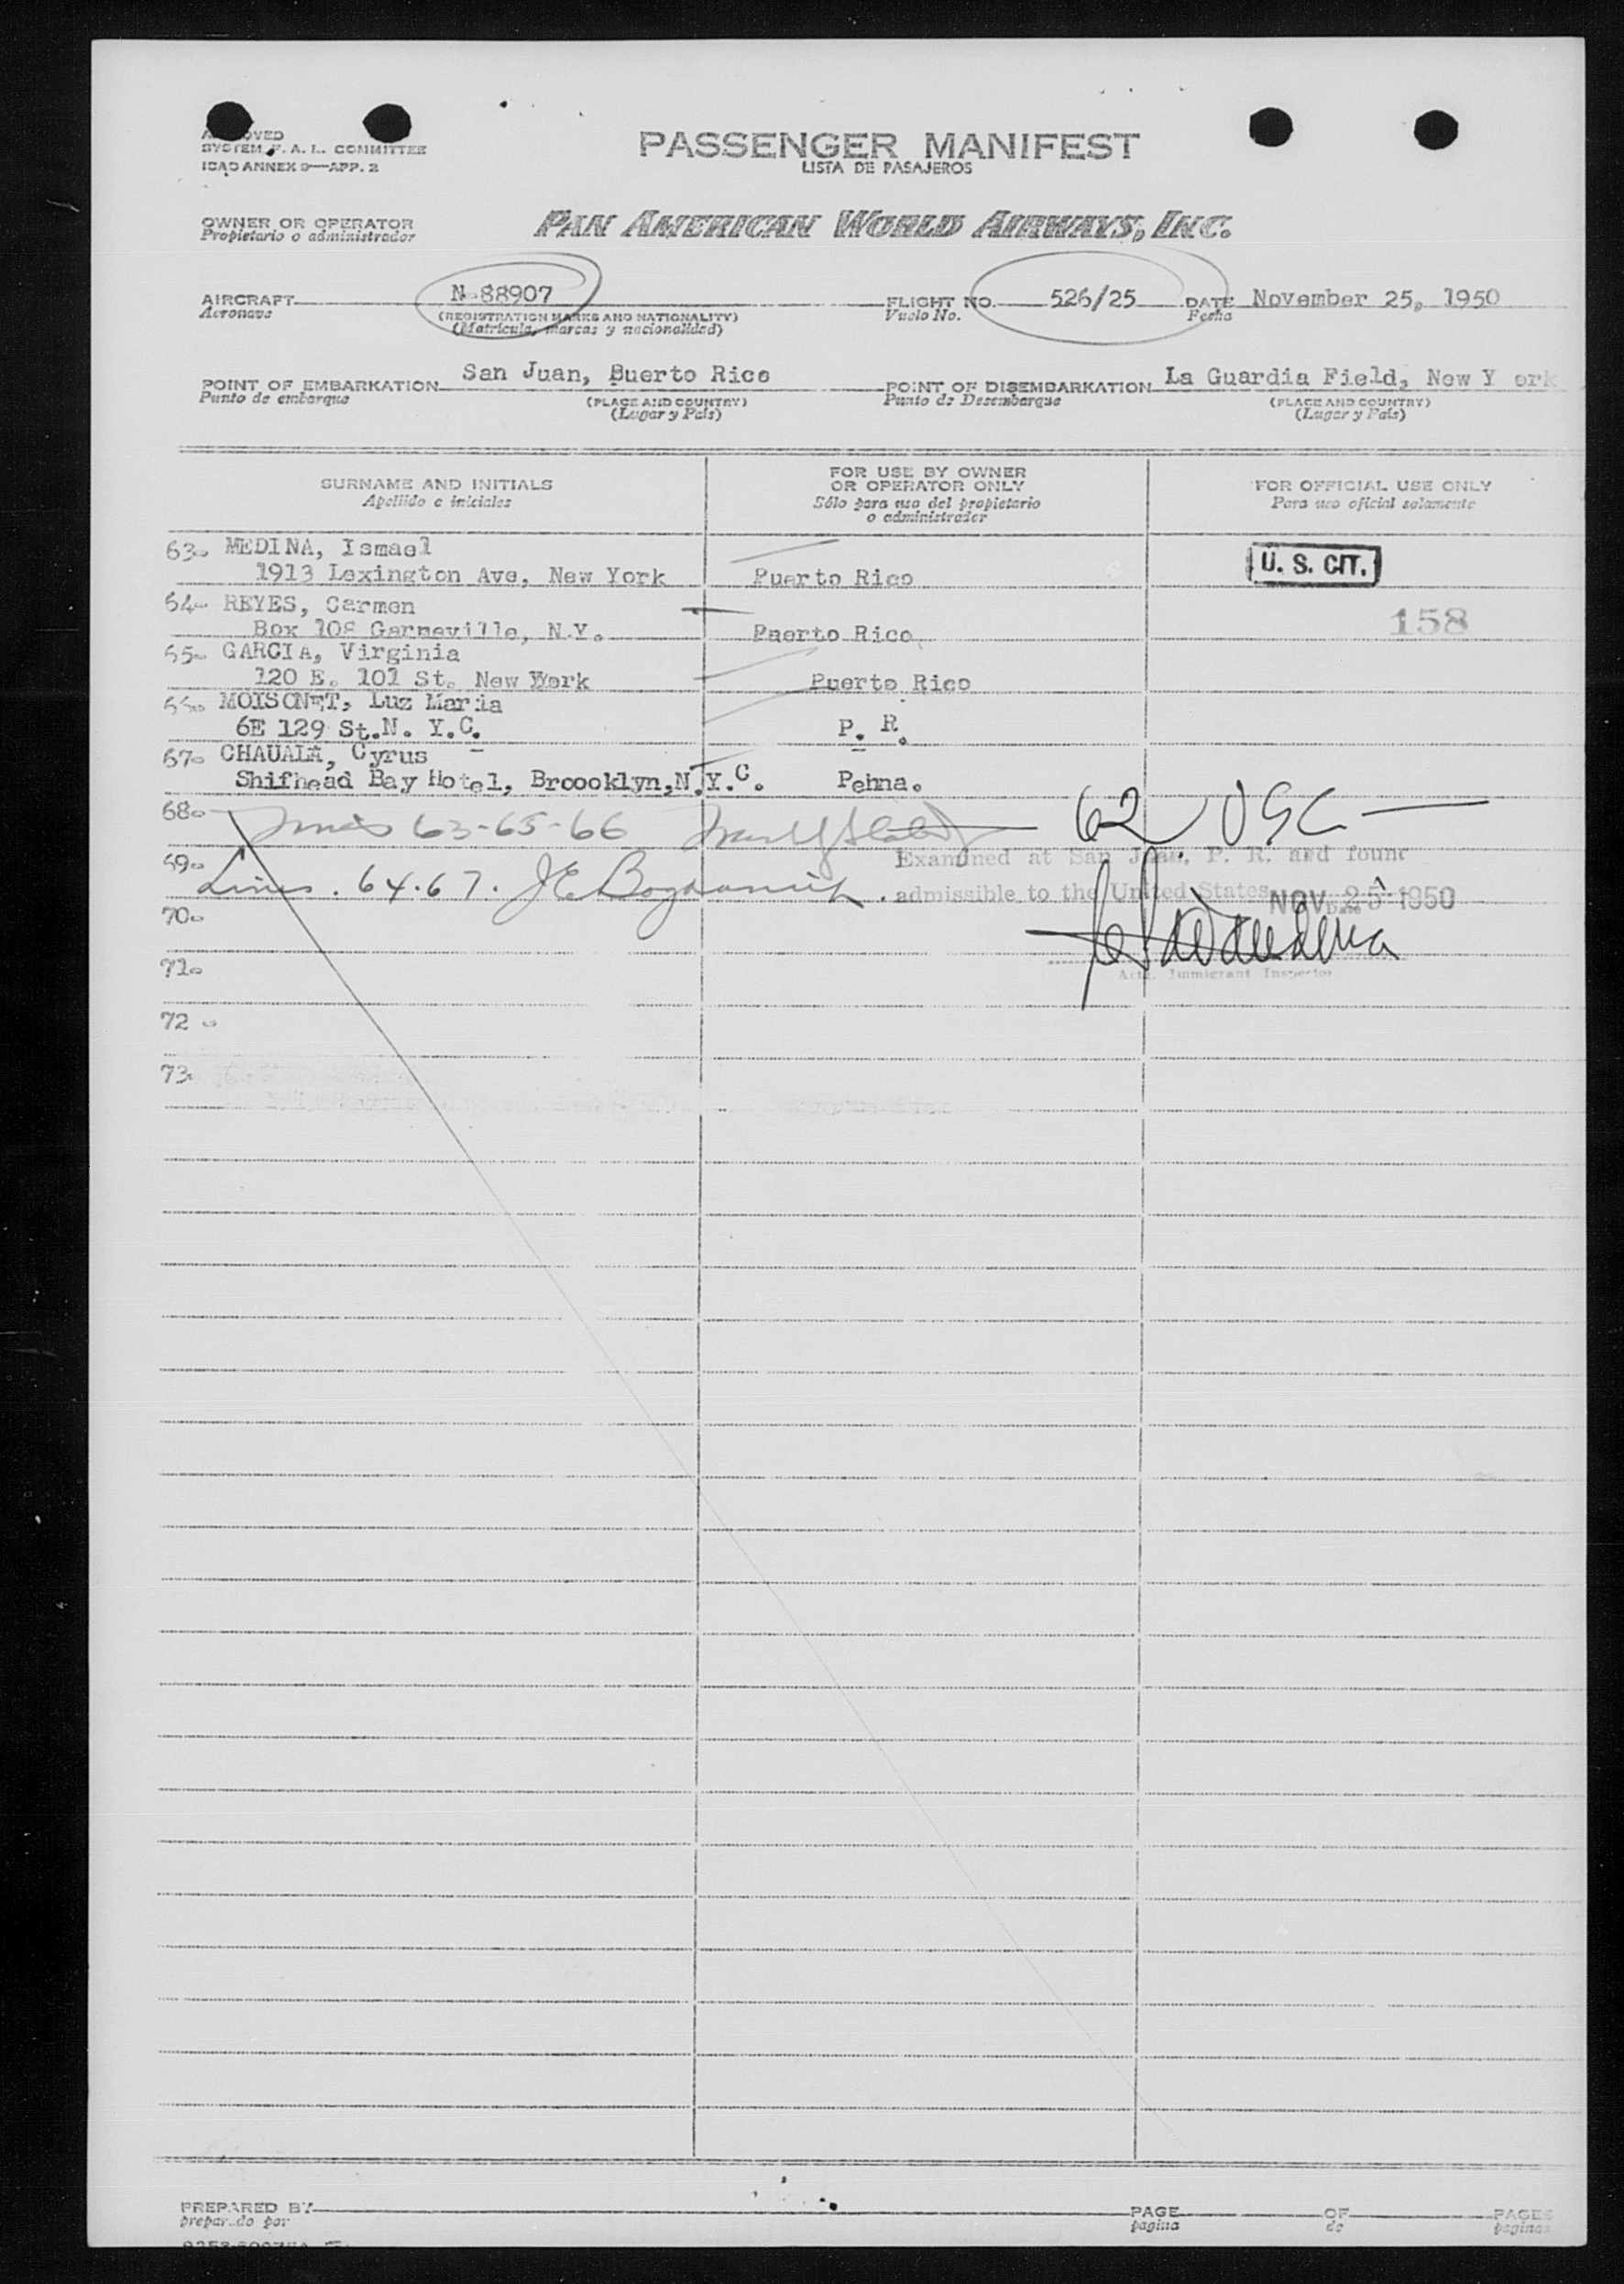 APPROVED
SYSTEM F. A. L. COMMITTEE
ICAO ANNEX 9—APP. 2
PASSENGER MANIFEST
LISTA DE PASAJEROS
OWNER OR OPERATOR
Propietario o administrador
PAN AMERICAN WORLD AIRWAYS, INC.
AIRCRAFT N-88907 FLIGHT NO. 526/25 DATE November 25, 1950
Aeronave (REGISTRATION MARKS AND NATIONALITY) Vuelo No. Fecha
(Matricula, marcas y nacionalidad)
POINT OF EMBARKATION San Juan, Puerto Rico POINT OF DISEMBARKATION La Guardia Field, New Y ork
Punto de embarque (PLACE AND COUNTRY) Punto de Desembarque (PLACE AND COUNTRY)
(Lugar y País) (Lugar y País)
SURNAME AND INITIALS FOR USE BY OWNER OR OPERATOR ONLY FOR OFFICIAL USE ONLY
Apellido e iniciales Sólo para uso del propietario o administrador Para uso oficial solamente
63. MEDINA, Ismael U. S. CIT.
1913 Lexington Ave, New York Puerto Rico
64. REYES, Carmen 158
Box 108 Garneville, N.Y. Puerto Rico
65. GARCIA, Virginia
120 E. 101 St. New York Puerto Rico
66. MOISONET, Luz Maria
6E 129 St.N. Y.C. P. R.
67. CHAUALA, Cyrus
Shifhead Bay Hotel, Broooklyn,N.Y.C. Penna.
68. 63-65-66 62 USC
Examined at San Juan, P. R. and found
69. Lines. 64.67. admissible to the United States NOV 25 1950
Date
70.
71.
Actg. Immigrant Inspector
72.
73.
PREPARED BY PAGE OF PAGES
preparado por pagina de paginas